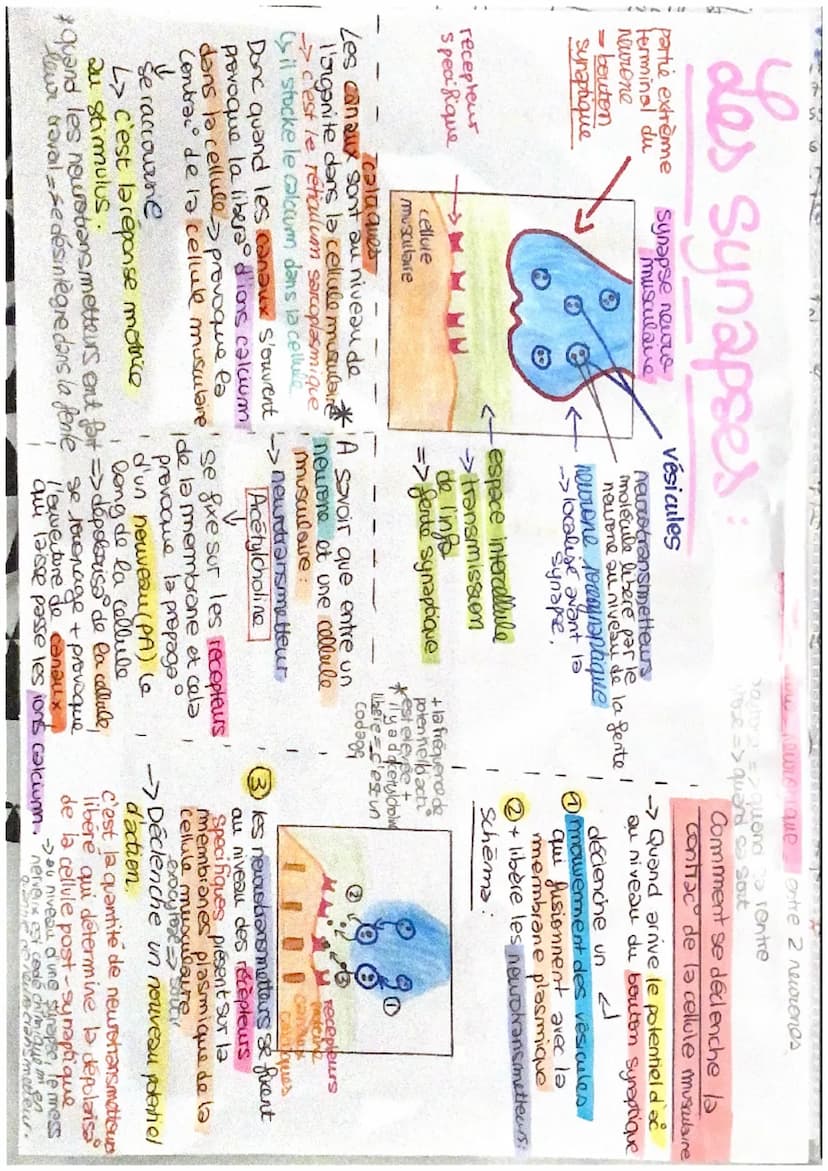 Les Synapses :
partie extrême
terminal du
neurone
= bouton
synaptique
synapse neuro
musculaire
vésicules
neurotransmetteurs
molécule libéré par le
neurone au niveau de la fente
neurone présynaptique
-> localisé avant la
synapse.
récepteur
spécifique
cellule
musculaire
espace intercellula
-> transmission
de l'info
=> fente synaptique
calciques
Les canaux sont au niveau de
l'organite dans la cellule musculaire *
-> c'est le réticulum sarcoplasmique
↳ il stocke le calcium dans la cellule
Donc quand les canaux s'ouvent
provoque la libér° d'ions calcium
dans la cellule => provoque la
contra° de la cellule musculaire
↓
se raccourcie
↳ c'est la réponse motrice
au stimulus.
* Quand les neurotransmetteurs ont fait
leur travail = se désintègre dans la fente
A savoir que entre un
neurone et une cellule
musculaire :
-> neurotransmetteur
Acétylcholine
↓
se fixe sur les récepteurs
de la membrone et cela
provoque la propag°
d'un nouveau (PA) le
long de la cellule
=> dépolaris° de la cellule,
se propage + provoque
l'ouverture de canaux
qui laisse passe les ions calcium.
neuronique entre 2 neurones
quand ça rentre
=> quand ça sort
Comment se déclenche la
contrac° de la cellule musculaire
-> Quand arrive le potentiel d'ac
au niveau du bouton synaptique
déclenche un ↵
① mouvement des vésicules
qui fusionnent avec la
membrane plasmique
② + libère les neurotransmetteurs :
schéma :
+ la fréquence de
potentiel d'ach°
est elevée +
* il y a d'acetylcholin
libéré = c'est un
codage
①
②
③
récepteurs
protéine
canaux
calciques
③ les neurotransmetteurs se fixent
au niveau des récepteurs
specifiques présent sur la
membranes plasmique de la
cellule musculaire
exocytose => sortir
-> Déclenche un nouveau potentiel
d'action.
c'est la quantité de neurotransmetteurs
libéré qui détermine la dépolaris°
de la cellule post-synaptique
-> au niveau d'une synapse, le mess
nerveux est codé chimiquemt en
neurotransmetteur.